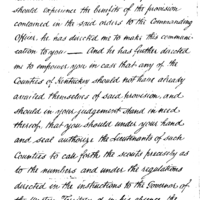 should experience the benefits of the provision
contained in the said orders to the Commanding
Officer, he has directed me to make this communi-
cation to you — And he has further directed
me to empower you in case that any of the
Counties of Kentucky should not have already
availed themselves of said provision, and
should in your judgement stand in need
thereof, that you should under your hand
and seal authorize the Lieutenants of such
Counties to call forth the scouts precisely as
to the numbers and under the regulations
directed in the instructions to the Governor of
the Western Territory or in his absence the